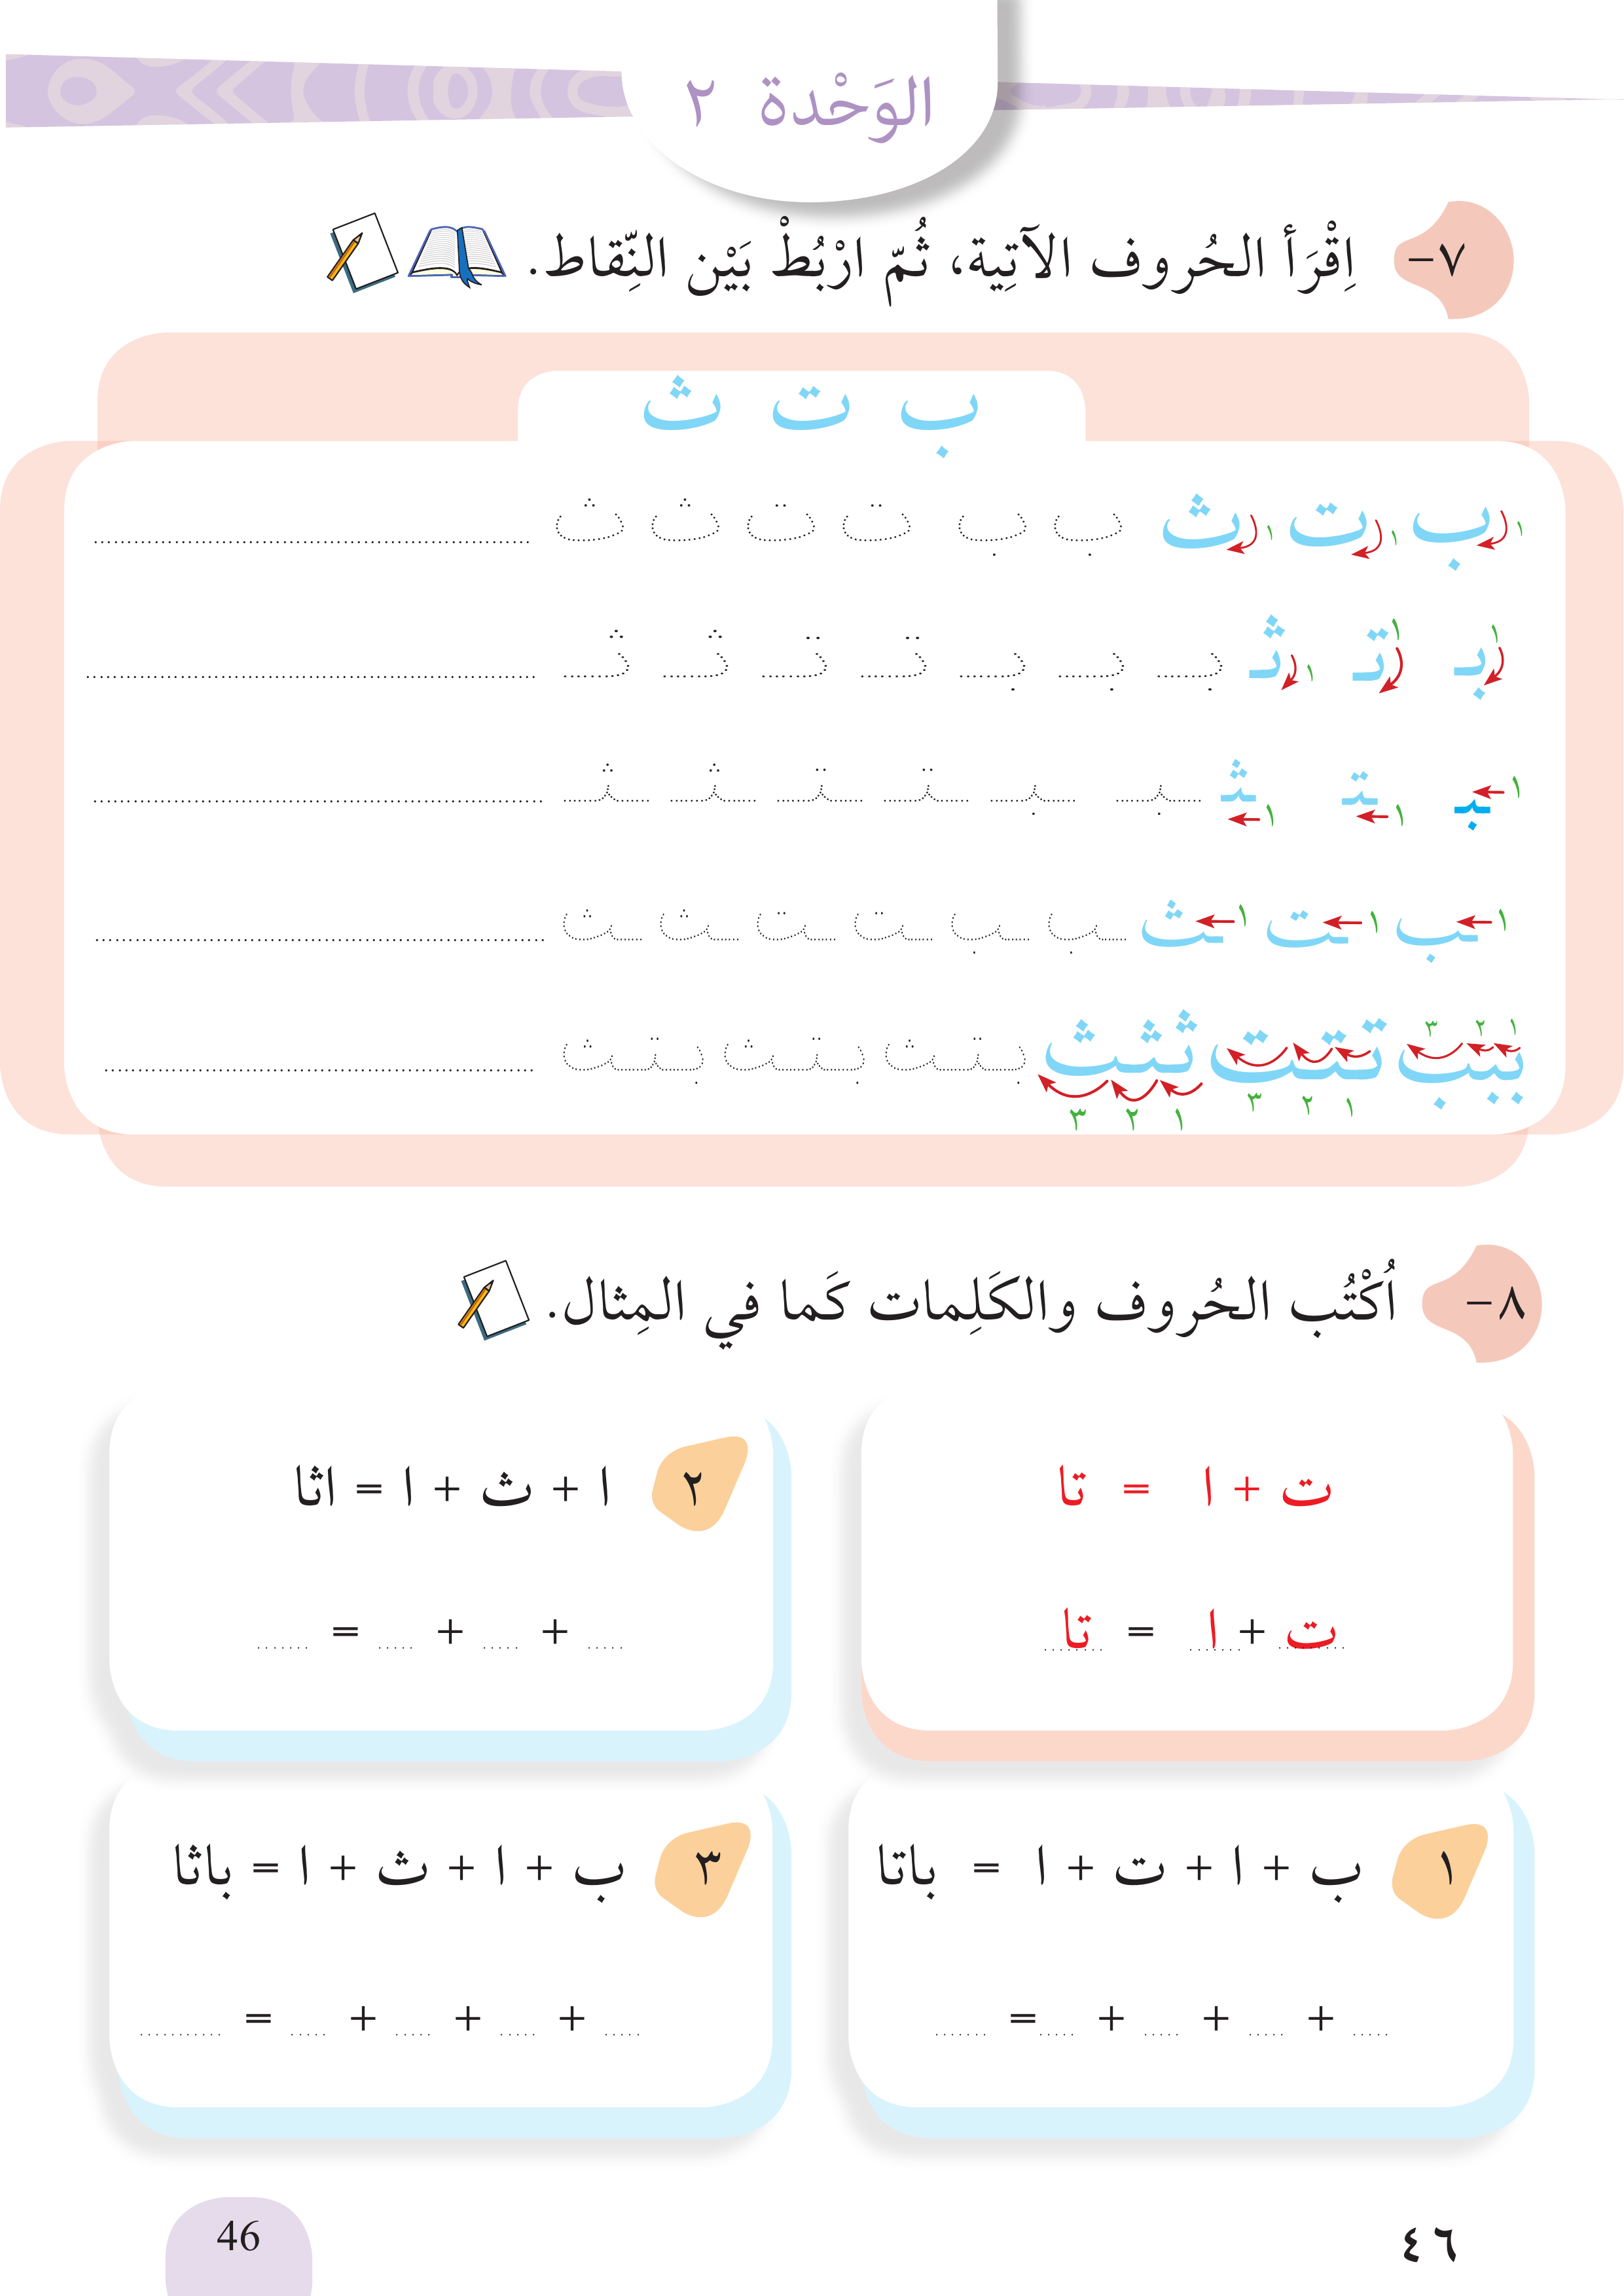 الوَحْدة ٢
٧- اِقْرَأ الحُروف الآتِية، ثُمّ ارْبُطْ بَيْن النِّقاط.
ب ت ث
ب ١ ت ١ ث ١ ب ب ت ت ث ث
بـ ١ تـ ١ ثـ ١ بـ بـ بـ تـ تـ ثـ ثـ
ـبـ ١ ـتـ ١ ـثـ ١ ـبـ ـبـ ـتـ ـتـ ـثـ ـثـ
ـب ١ ـت ١ ـث ١ ـب ـب ـت ـت ـث ـث
ببب ١ ٢ ٣ تتت ١ ٢ ٣ ثثث ١ ٢ ٣ بتث بتث بتث
٨- اُكْتُب الحُروف والكَلِمات كَما في المِثال.
ت + ا = تا
ت + ا = تا
١ ب + ا + ت + ا = باتا
..... + ..... + ..... + ..... = .......
٢ ا + ث + ا = اثا
..... + ..... + ..... = .......
٣ ب + ا + ث + ا = باثا
..... + ..... + ..... + ..... = ...........
٤٦
46